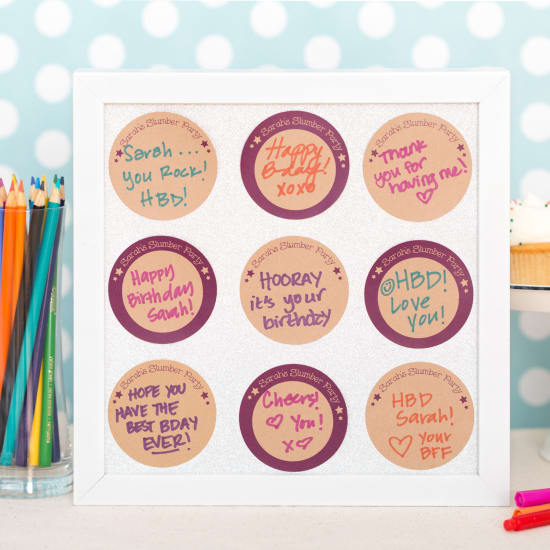 Sarah's Slumber Party
Sarah...
you Rock!
HBD!
Sarah's Slumber Party
Happy
B-day!
xoxo
Sarah's Slumber Party
Thank
you for
having me!
Sarah's Slumber Party
Happy
Birthday
Sarah!
Sarah's Slumber Party
HOORAY
it's your
birthday
Sarah's Slumber Party
HBD!
Love
you!
Sarah's Slumber Party
HOPE YOU
HAVE THE
BEST BDAY
EVER!
Sarah's Slumber Party
Cheers!
♡ You!
x♡
Sarah's Slumber Party
HBD
Sarah!
♡ Your
BFF